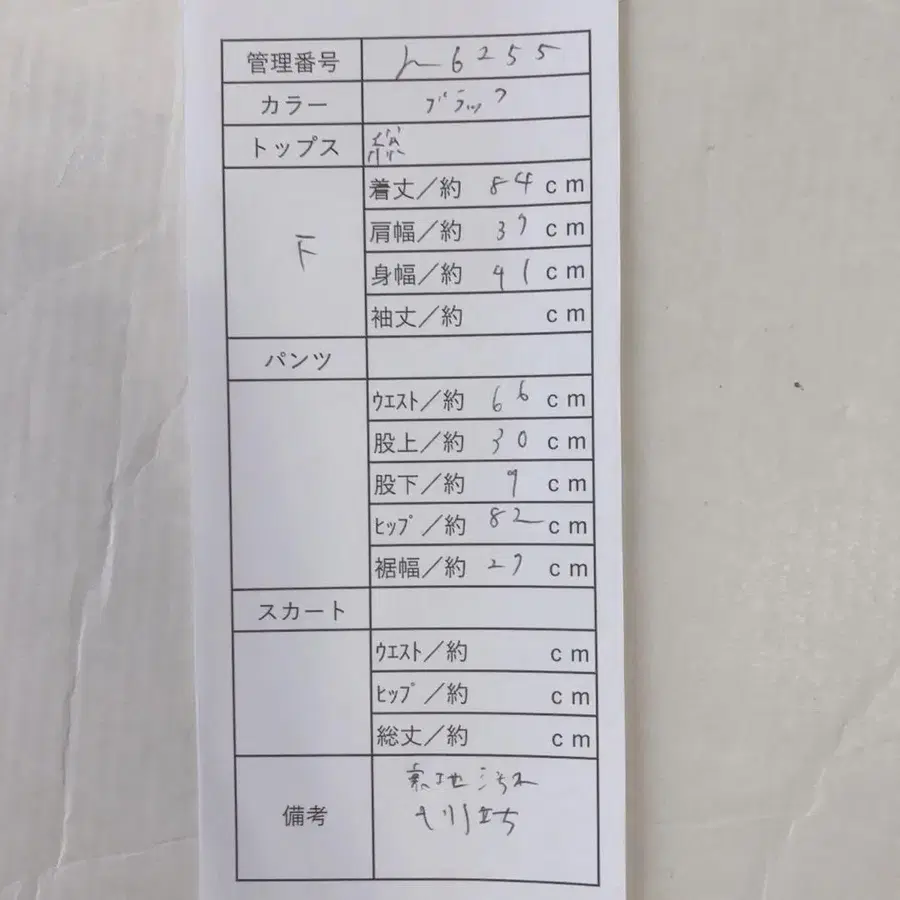 管理番号 ん6255
カラー ブラック
トップス 総
下
着丈／約 84 cm
肩幅／約 37 cm
身幅／約 41 cm
袖丈／約 cm
パンツ
ウエスト／約 66 cm
股上／約 30 cm
股下／約 9 cm
ヒップ／約 82 cm
裾幅／約 27 cm
スカート
ウエスト／約 cm
ヒップ／約 cm
総丈／約 cm
備考